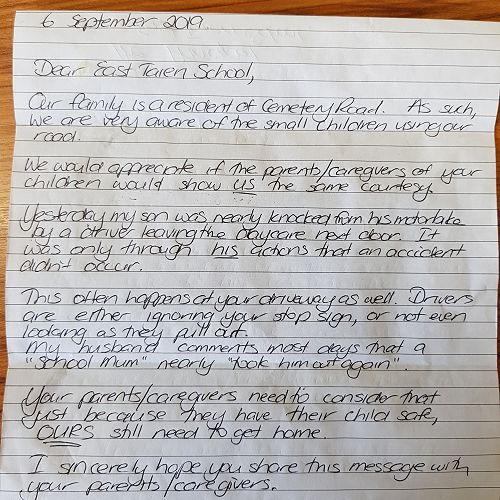 6 September 2019.
Dear East Taieri School,
Our family is a resident of Cemetery Road. As such,
we are very aware of the small children using our
road.
We would appreciate if the parents/caregivers of your
children would show us the same courtesy.
Yesterday my son was nearly knocked from his motorbike
by a driver leaving the daycare next door. It
was only through his actions that an accident
didn't occur.
This often happens at your driveway as well. Drivers
are either ignoring your stop sign, or not even
looking as they pull out.
My husband comments most days that a
"school mum" nearly "took him out again".
Your parents/caregivers need to consider that
just because they have their child safe,
OURS still need to get home.
I sincerely hope you share this message with
your parents/caregivers.